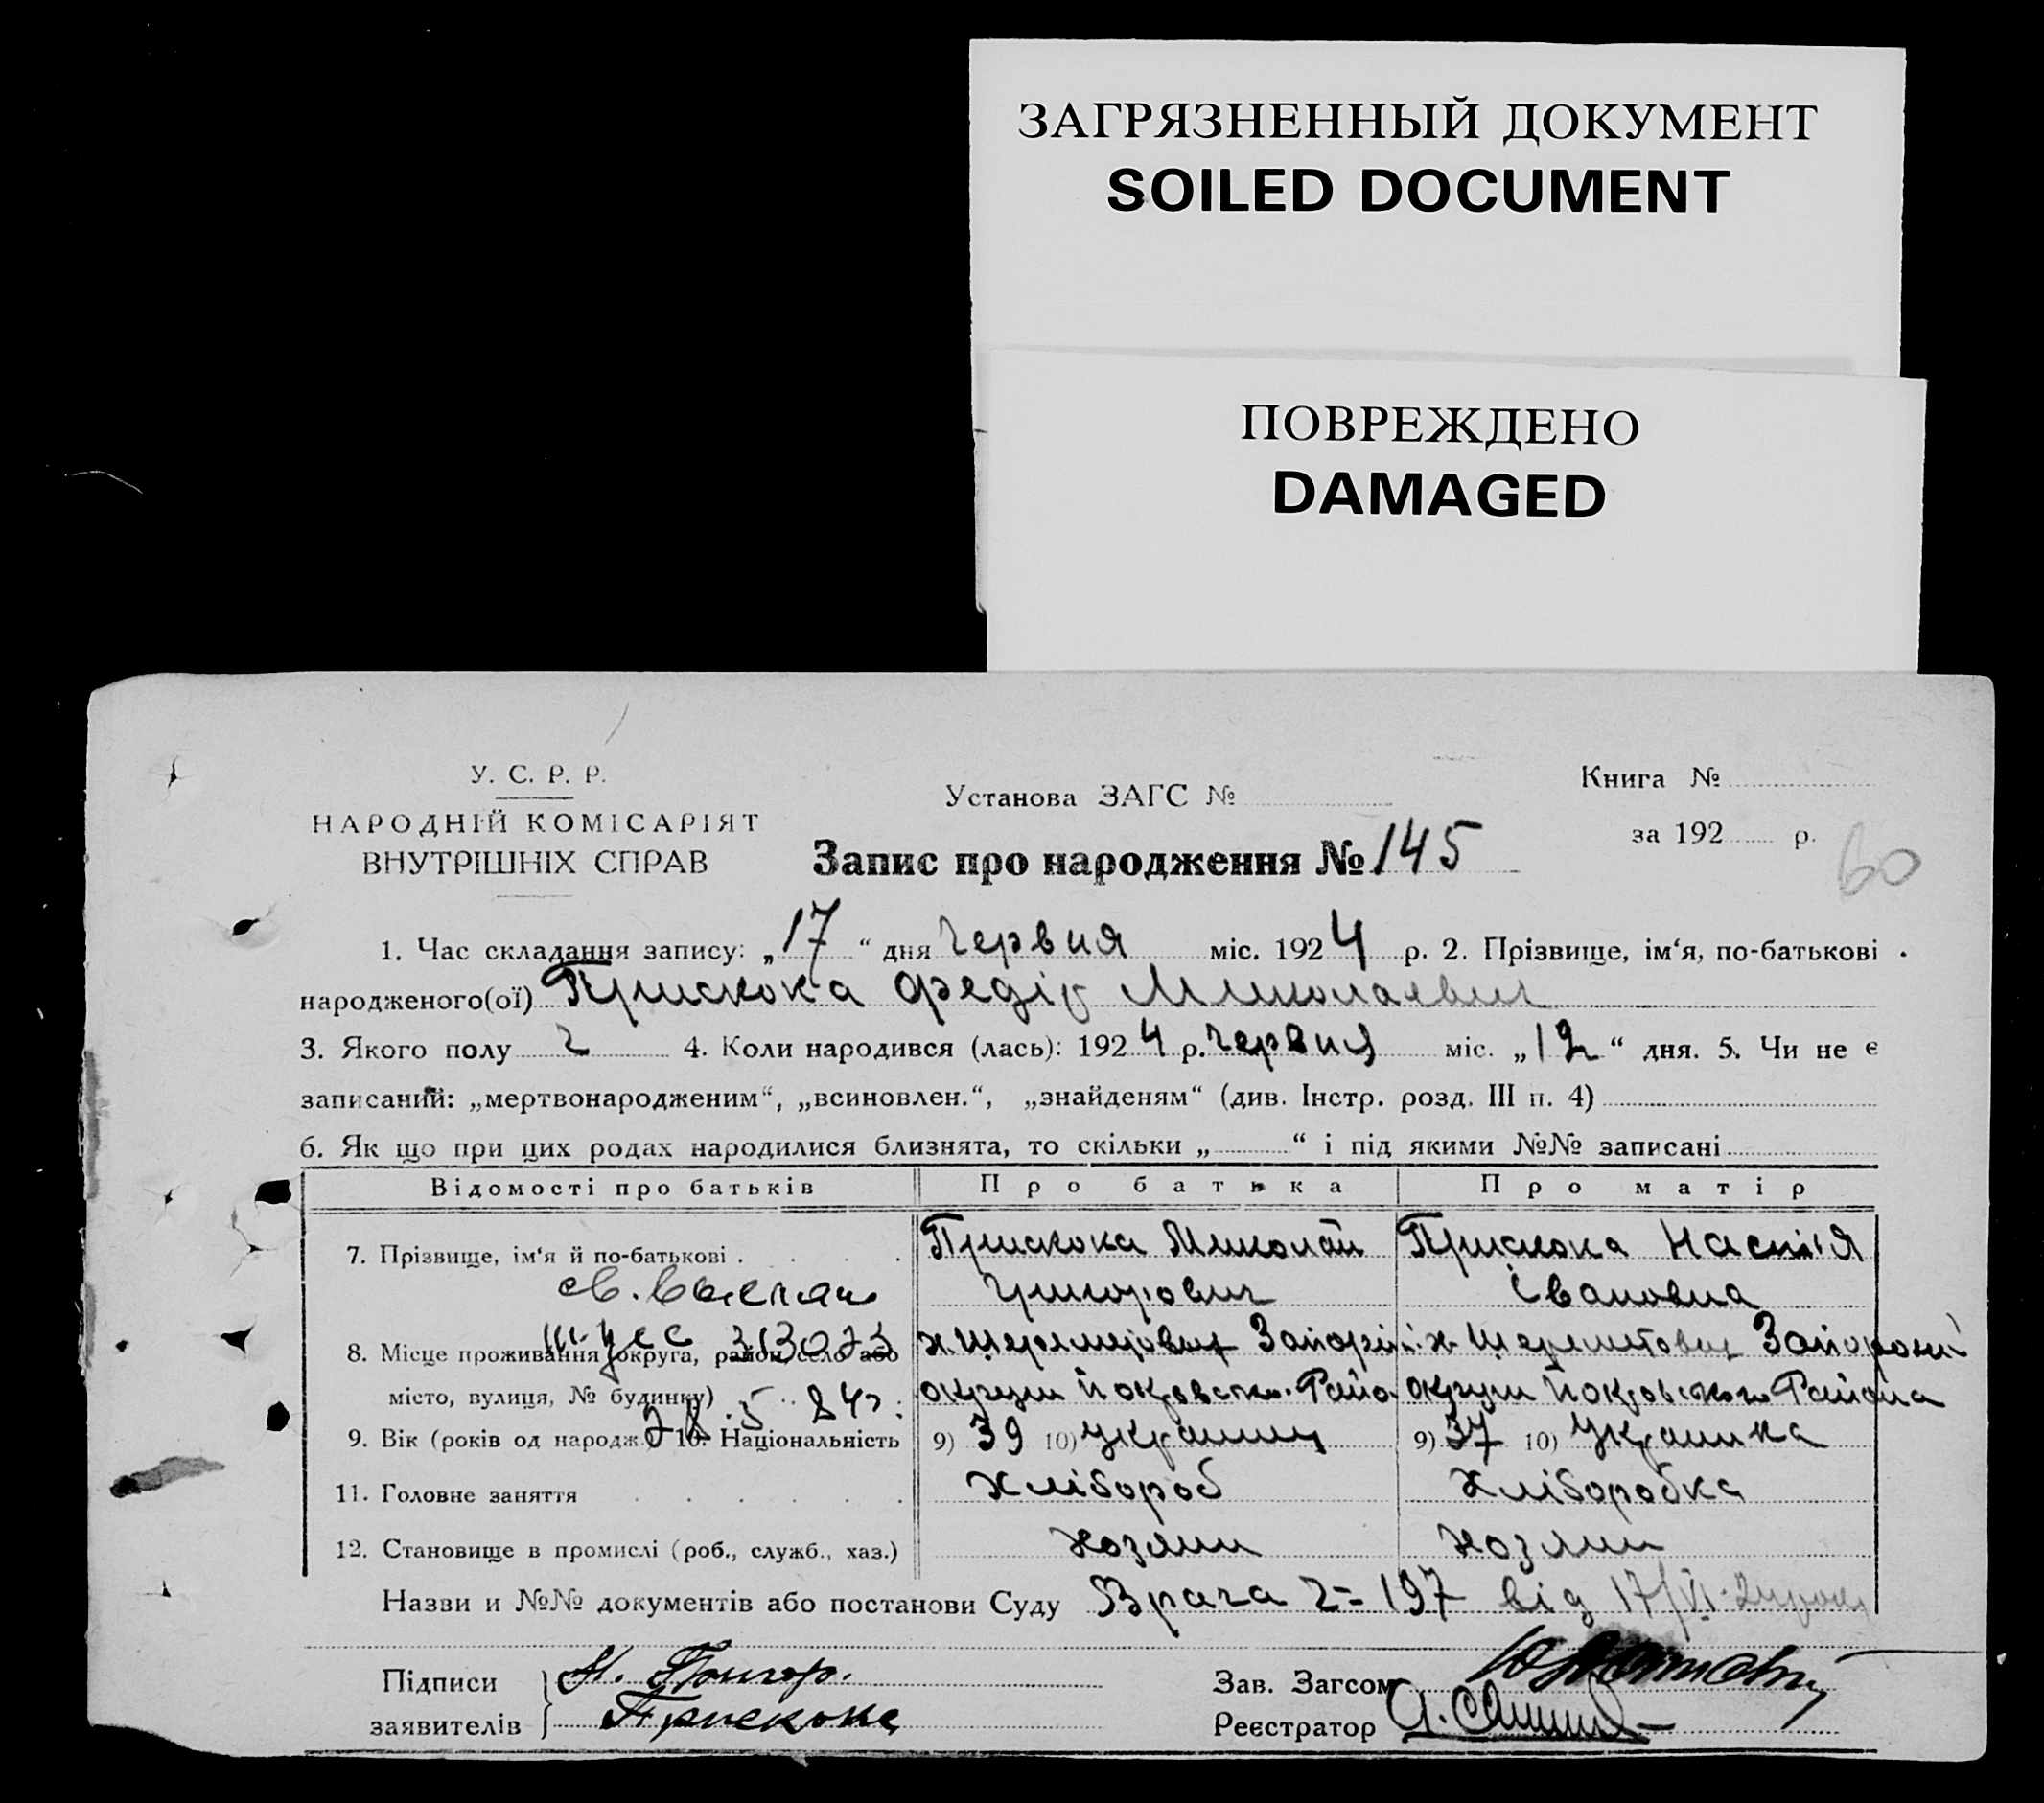 ЗАГРЯЗНЕННЫЙ ДОКУМЕНТ
SOILED DOCUMENT
ПОВРЕЖДЕНО
DAMAGED
У. С. Р. Р.
НАРОДНІЙ КОМІСАРІЯТ
ВНУТРІШНІХ СПРАВ
Установа ЗАГС №
Книга №
за 192 р.
60
Запис про народження № 145
1. Час складання запису: „17“ дня червня міс. 1924 р. 2. Прізвище, ім‘я, по-батькові
народженого(ої) Прискока Федір Миколаевич
3. Якого полу ч 4. Коли народився (лась): 1924 р. червня міс. „12“ дня. 5. Чи не є
записаний: „мертвонародженим“, „всиновлен.“, „знайденям“ (див. Інстр. розд. III п. 4)
6. Як що при цих родах народилися близнята, то скільки „ “ і під якими №№ записані
Відомості про батьків Про батька Про матір
7. Прізвище, ім‘я й по-батькові Прискока Миколай Прискока Настія
св. Григорович Івановна
8. Місце проживання (округа, район, село або х. Запоріз. х. Запорізкі
місто, вулиця, № будинку) округи Покровськ. Райо округи Покровського Района
28.5 84г.
9. Вік (років од народж. 10. Національність 9) 39 10) Украинец 9) 37 10) Украинка
11. Головне заняття Хлібороб Хліборобка
12. Становище в промислі (роб., служб., хаз.) Хозяин Хозяин
Назви и №№ документів або постанови Суду Врача 2=197 від 17/VI-24 року
Підписи
заявителів Прискока
Зав. Загсом
Реєстратор